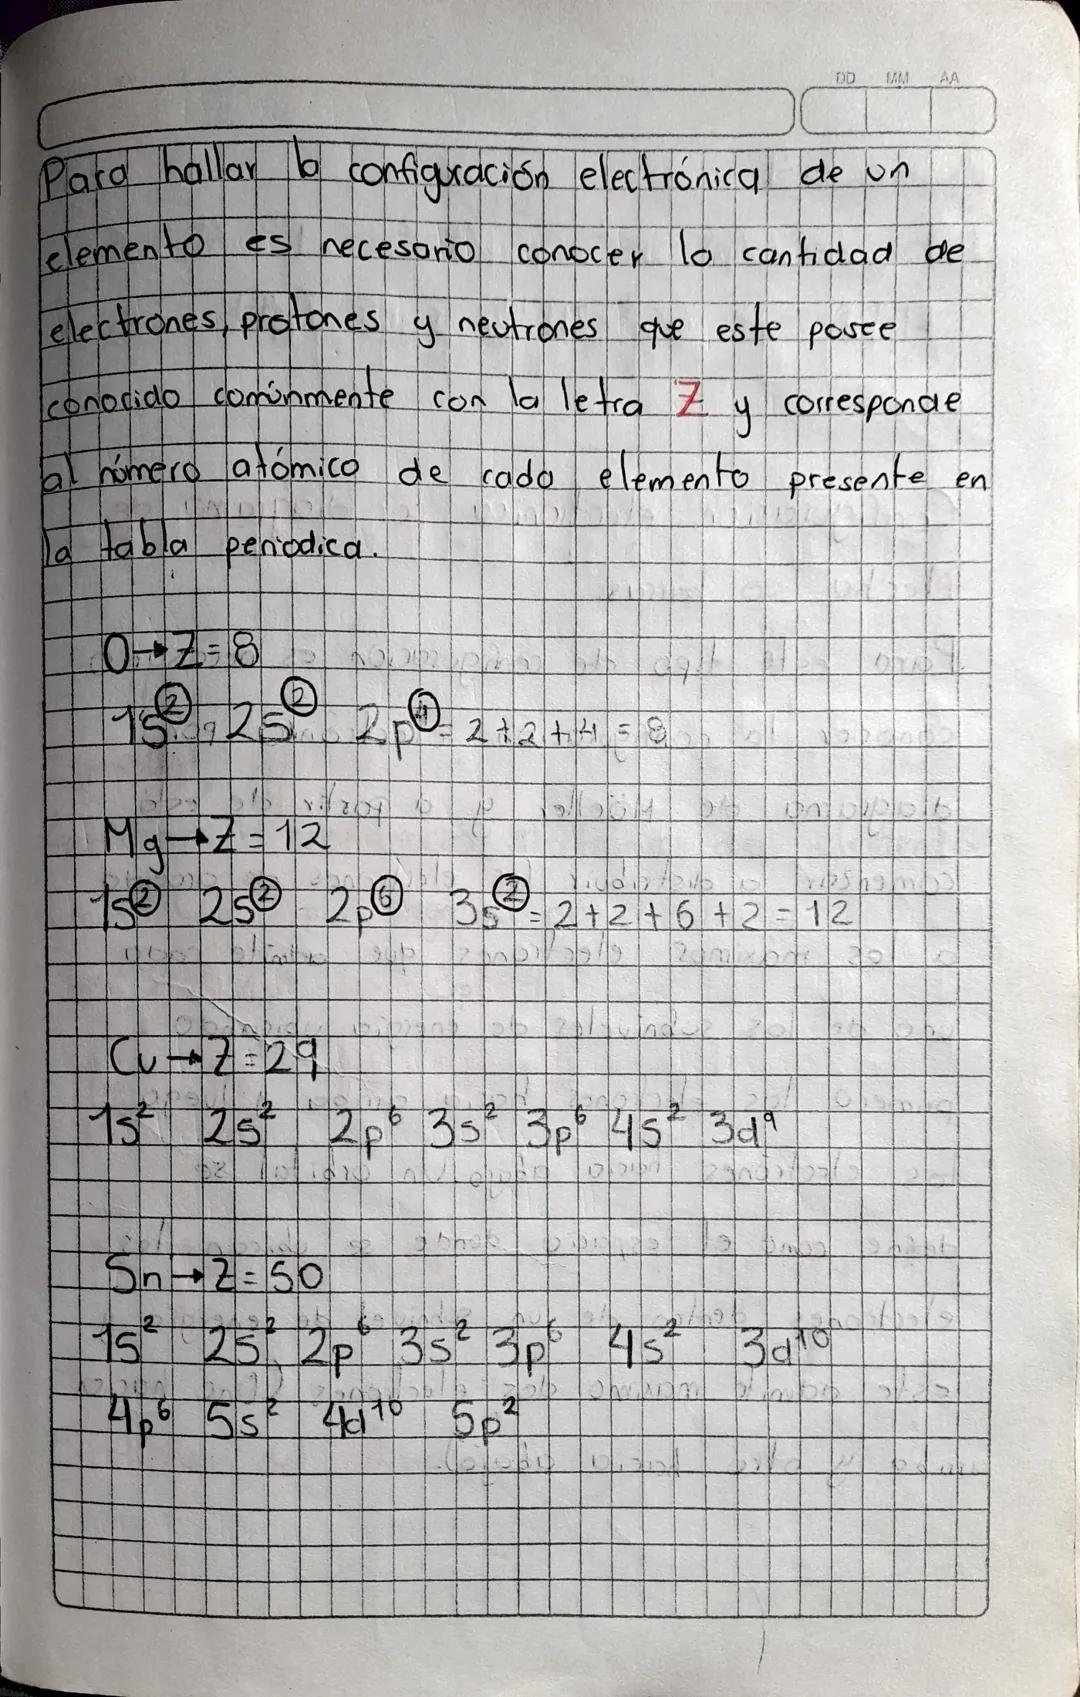 DD MM AA
Para hallar la configuración electrónica de un
elemento es necesario conocer la cantidad de
electrones, protones y neutrones que este posee
conocido comúnmente con la letra Z y corresponde
al número atómico de cada elemento presente en
la tabla periodica.
O→Z=8
1s² 2s² 2p⁴ = 2+2+4=8
Mg→Z=12
1s² 2s² 2p⁶ 3s² = 2+2+6+2=12
Cu→Z=29
1s² 2s² 2p⁶ 3s² 3p⁶ 4s² 3d⁹
Sn→Z=50
1s² 2s² 2p⁶ 3s² 3p⁶ 4s² 3d¹⁰
4p⁶ 5s² 4d¹⁰ 5p²